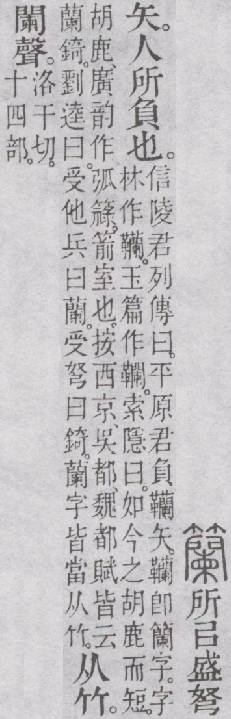 籣所㠯盛弩
矢。人所負也。
信陵君列傳曰。平原君負韊矢。韊卽籣字。字
林作韊。玉篇作。索隱曰。如今之胡鹿而短。
胡鹿、廣韵作弧簶。箭室也。按西京、吳都、魏都賦皆云
蘭錡。劉逵曰。受他兵曰蘭。受弩曰錡。蘭字皆當从竹。
从竹。
闌聲。
洛干切。
十四部。